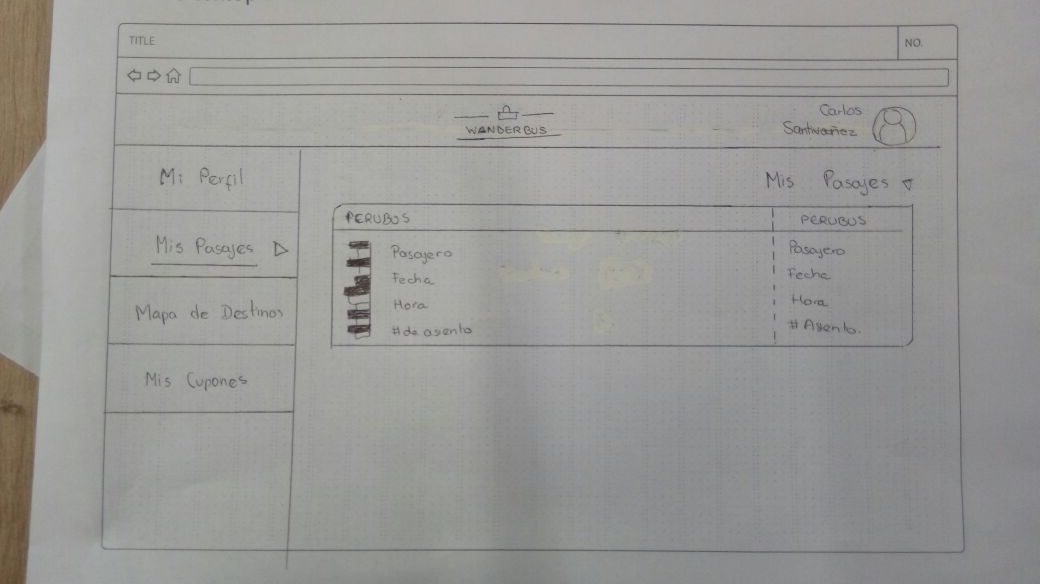 TITLE
NO.
WANDERBUS
Carlos
Santivañez
Mi Perfil
Mis Pasajes
Mapa de Destinos
Mis Cupones
Mis Pasajes
PERUBUS
Pasajero
Fecha
Hora
# de asiento
PERUBUS
Pasajero
Fecha
Hora
# Asiento.